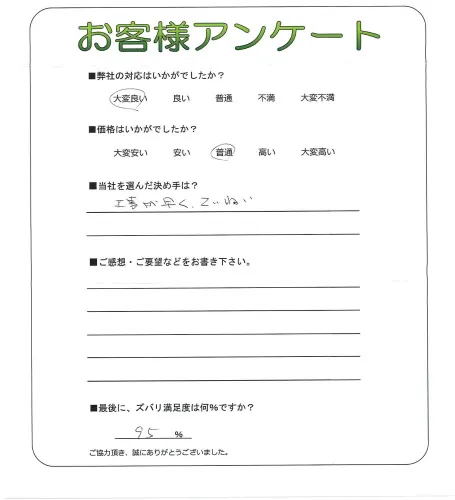 お客様アンケート
■弊社の対応はいかがでしたか？
大変良い 良い 普通 不満 大変不満
■価格はいかがでしたか？
大変安い 安い 普通 高い 大変高い
■当社を選んだ決め手は？
工事が早く、ていねい
■ご感想・ご要望などをお書き下さい。
■最後に、ズバリ満足度は何%ですか？
95 %
ご協力頂き、誠にありがとうございました。